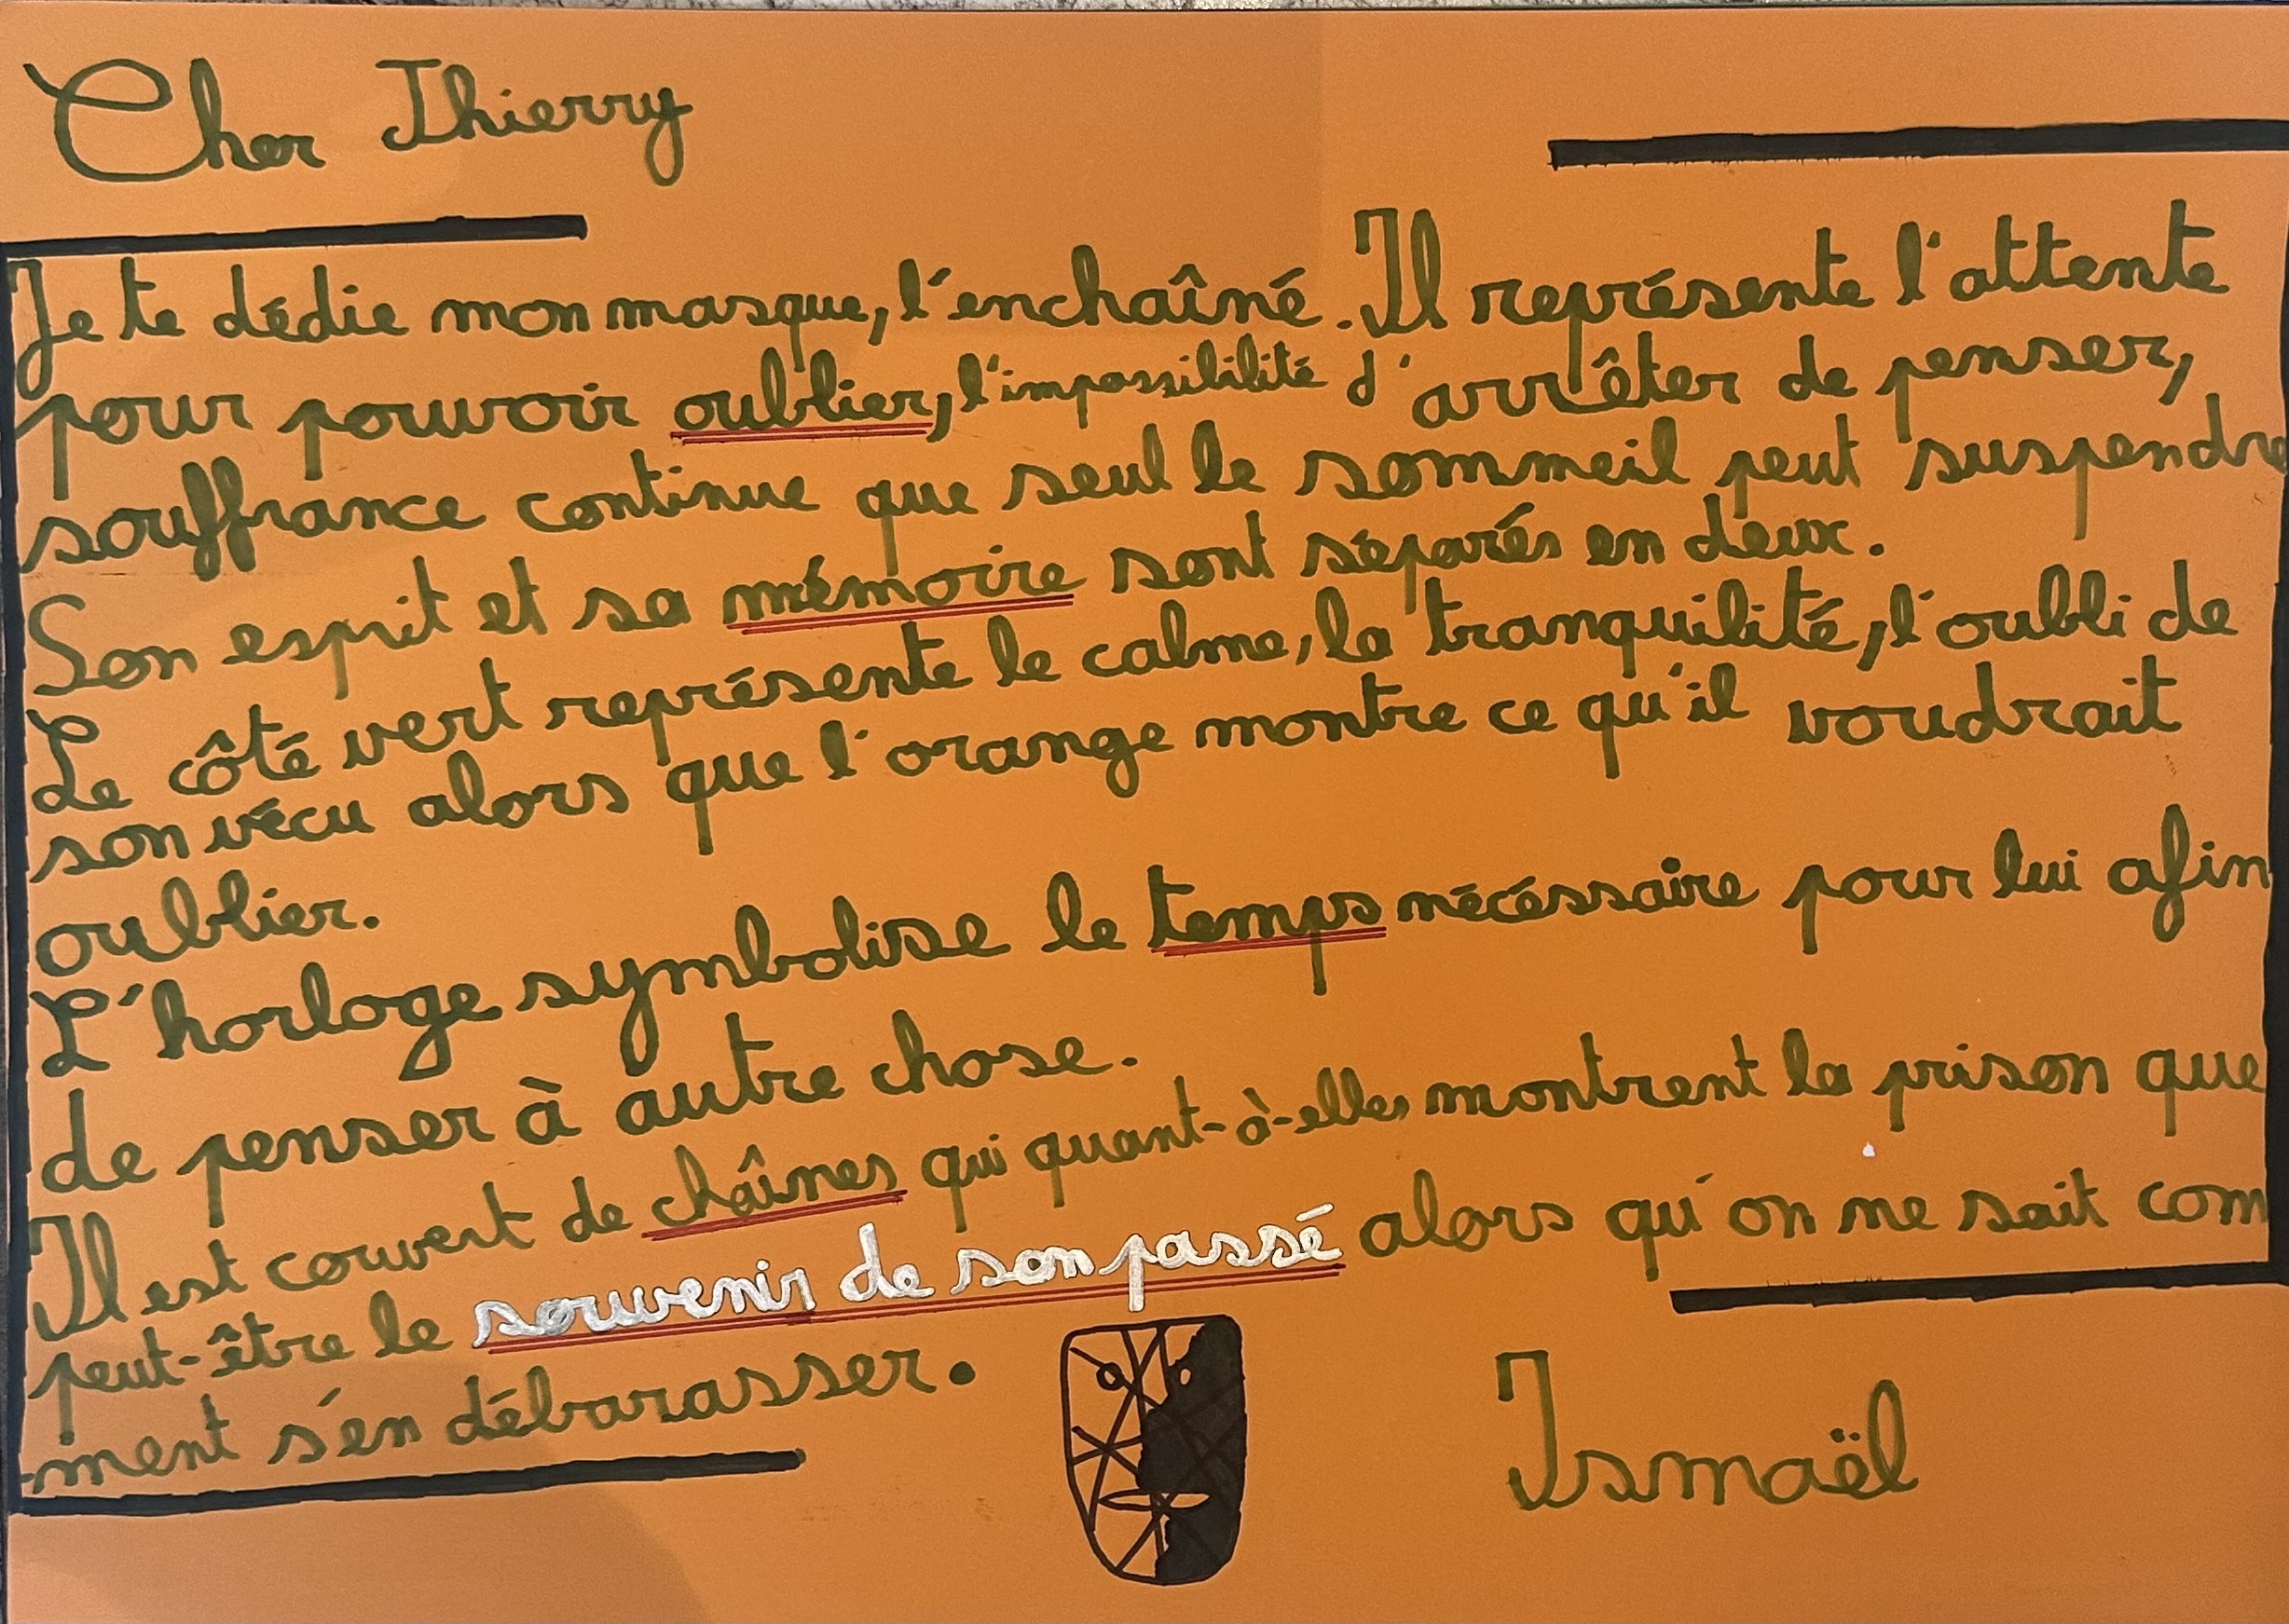 Cher Thierry
Je te dédie mon masque, l'enchaîné. Il représente l'attente
pour pouvoir oublier, l'impossibilité d'arrêter de penser,
souffrance continue que seul le sommeil peut suspendre
Son esprit et sa mémoire sont séparés en deux.
Le côté vert représente le calme, la tranquilité, l'oubli de
son vécu alors que l'orange montre ce qu'il voudrait
oublier.
L'horloge symbolise le temps nécéssaire pour lui afin
de penser à autre chose.
Il est couvert de chaînes qui quant-à-elles montrent la prison que
peut-être le souvenir de son passé alors qu'on ne sait com
-ment s'en débarasser.
Ismaël